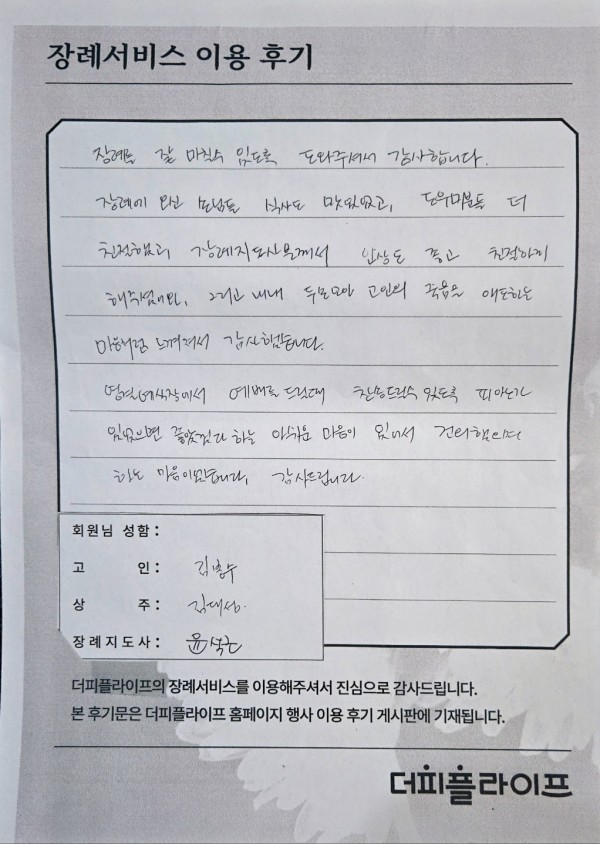 장례서비스 이용 후기
장례를 잘 마칠수 있도록 도와주셔서 감사합니다.
장례에 오신 손님들 식사도 맛있었고, 도우미분들 더
친절했고 장례지도사분께서 인상도 좋고 친절하게
해주셨어요, 그리고 내내 두분모아 고인의 죽음을 애도하는
마음처럼 느껴져서 감사했습니다.
영결예식장에서 예배를 드릴때 찬송드릴수 있도록 피아노가
있었으면 좋았겠다 하는 아쉬운 마음이 있어서 건의했으면
하는 마음이었습니다, 감사드립니다.
회원님 성함 :
고 인 : 김
상 주 : 김대성
장례지도사 : 윤석근
더피플라이프의 장례서비스를 이용해주셔서 진심으로 감사드립니다.
본 후기문은 더피플라이프 홈페이지 행사 이용 후기 게시판에 기재됩니다.
더피플라이프